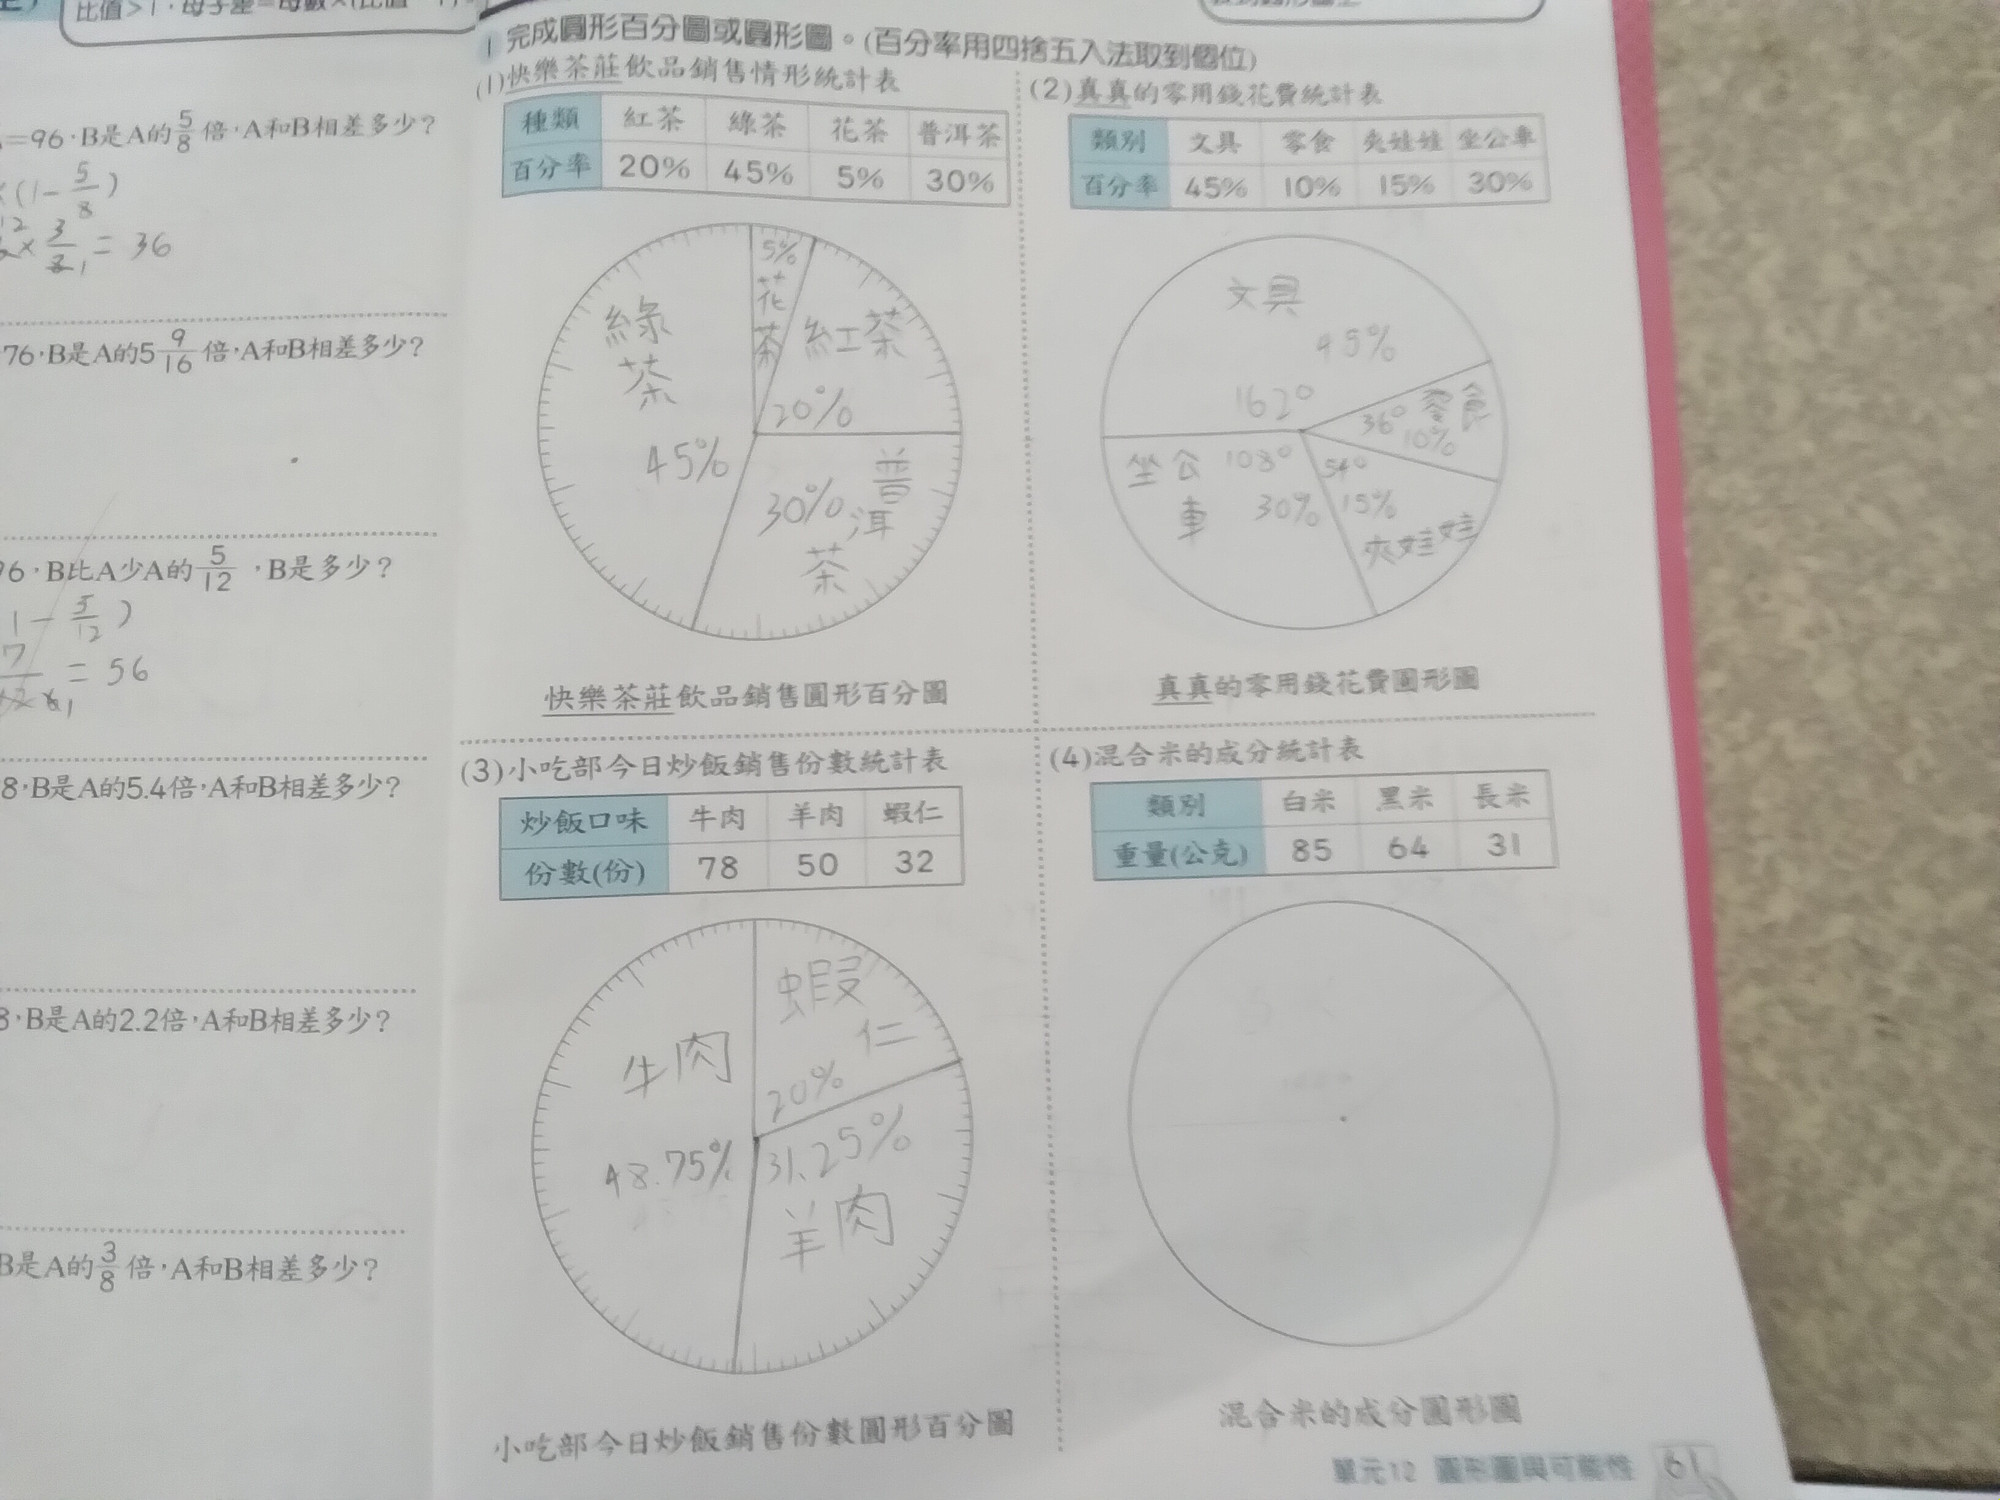 =96，B是A的5/8倍，A和B相差多少？
(1-5/8)
3/8 = 36
76，B是A的5 9/16倍，A和B相差多少？
96，B比A少A的5/12，B是多少？
1-5/12)
= 56
8，B是A的5.4倍，A和B相差多少？
8，B是A的2.2倍，A和B相差多少？
B是A的3/8倍，A和B相差多少？
1 完成圓形百分圖或圓形圖。(百分率用四捨五入法取到個位)
(1)快樂茶莊飲品銷售情形統計表
種類 紅茶 綠茶 花茶 普洱茶
百分率 20% 45% 5% 30%
5%
花茶
綠茶
45%
紅茶
20%
30%
普洱茶
快樂茶莊飲品銷售圓形百分圖
(2)真真的零用錢花費統計表
類別 文具 零食 夾娃娃 坐公車
百分率 45% 10% 15% 30%
文具
45%
162°
36° 零食
10%
坐公車 108°
30%
54°
15%
夾娃娃
真真的零用錢花費圓形圖
(3)小吃部今日炒飯銷售份數統計表
炒飯口味 牛肉 羊肉 蝦仁
份數(份) 78 50 32
蝦仁
20%
牛肉
48.75%
31.25%
羊肉
小吃部今日炒飯銷售份數圓形百分圖
(4)混合米的成分統計表
類別 白米 黑米 長米
重量(公克) 85 64 31
混合米的成分圓形圖
單元12 圓形圖與可能性 61